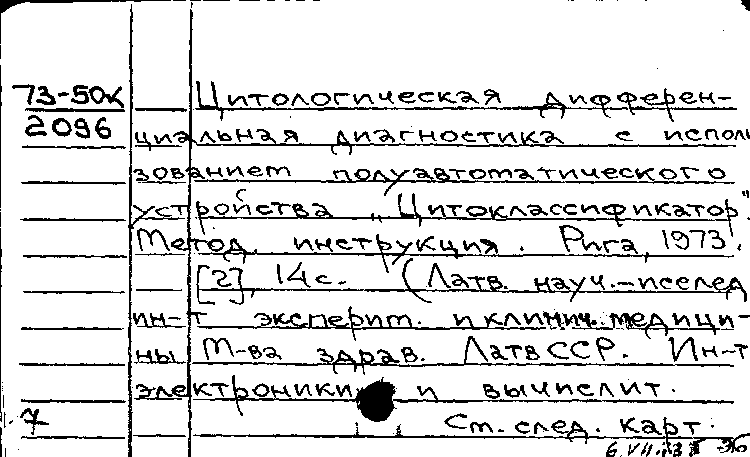 73-50к Цитологическая дифферен-
2096 циальная диагностика с исполь
зованием полуавтоматического
устройства „Цитоклассификатор".
Метод. инструкция. Рига, 1973.
[2], 14 с. (Латв. науч.-исслед
ин-т эксперит. и клинич. медици-
ны М-ва здрав. ЛатвССР. Ин-т
электроники и вычислит.
7 См. след. карт.